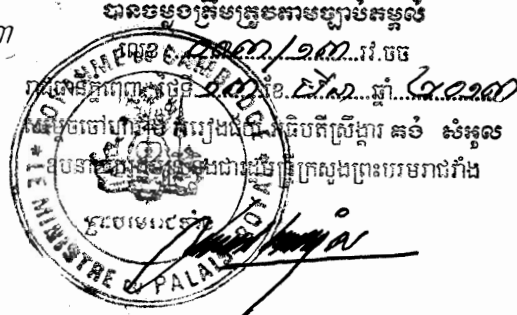 បានចម្លងត្រឹមត្រូវតាមច្បាប់តម្កល់
លេខ ... /១៣ រវ.ចច
រាជធានីភ្នំពេញ ថ្ងៃទី ១៣ ខែ សីហា ឆ្នាំ ២០១៣
សម្តេចចៅហ្វាវាំង វរវៀងជ័យ អធិបតីស្រឹង្គារ គង់ សំអុល
ឧបនាយករដ្ឋមន្ត្រី រដ្ឋមន្ត្រីក្រសួងព្រះបរមរាជវាំង
ROYAUME DU CAMBODGE
LE MINISTRE DU PALAIS ROYAL
ព្រះបរមរាជវាំង